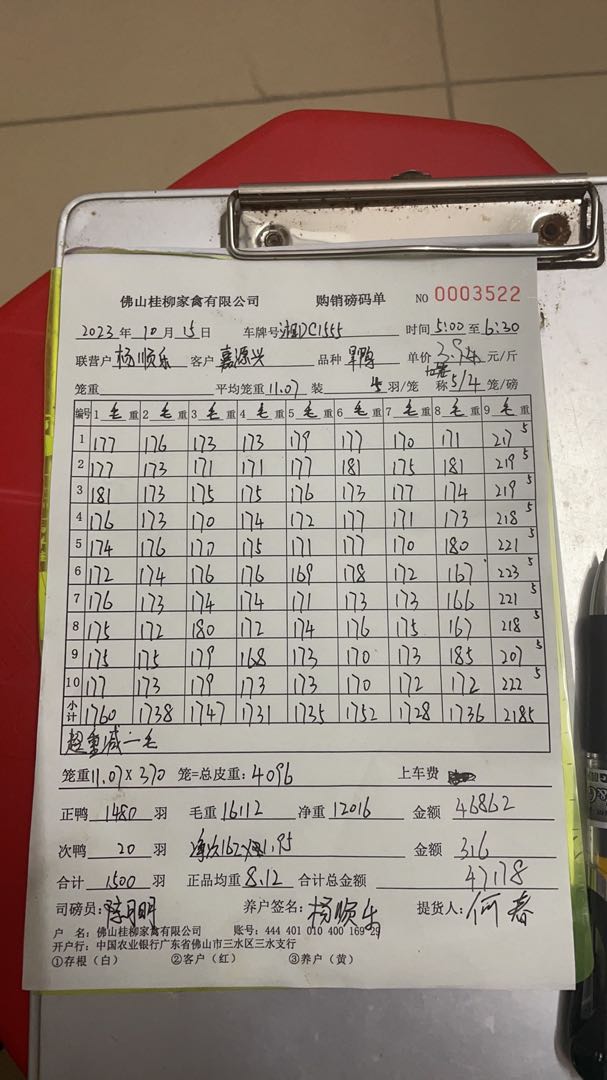 佛山桂柳家禽有限公司 购销磅码单 NO 0003522
2023年10月15日 车牌号湘DC1555 时间5:00至6:30
联营户杨顺乐 客户嘉源兴 品种旱鸭 单价 元/斤
笼重 平均笼重11.07 装5羽/笼 称5/4笼/磅
编号 1毛重 2毛重 3毛重 4毛重 5毛重 6毛重 7毛重 8毛重 9毛重
1 177 176 173 173 179 177 170 171 217 5
2 177 173 171 171 177 181 175 181 219 5
3 181 173 175 175 176 173 177 174 219 5
4 176 173 170 174 172 177 171 173 218 5
5 174 176 170 175 171 177 170 180 221 5
6 172 174 176 176 169 178 172 167 223 5
7 176 173 174 174 171 173 173 166 221 5
8 175 172 180 172 174 176 175 167 218 5
9 175 175 179 168 173 170 173 185 207 5
10 177 173 179 173 173 170 172 172 222 5
小计 1760 1738 1747 1731 1735 1752 1728 1736 2185
超重减一毛
笼重11.07×370 笼=总皮重:4096 上车费
正鸭1480羽 毛重16112 净重12016 金额46862
次鸭20羽 净次162 1.95 金额316
合计1500羽 正品均重8.12 合计总金额47178
司磅员:陈明 养户签名:杨顺乐 提货人:何春
户 名:佛山桂柳家禽有限公司 账号:444 401 010 400 169 29
开户行:中国农业银行广东省佛山市三水区三水支行
①存根(白) ②客户(红) ③养户(黄)